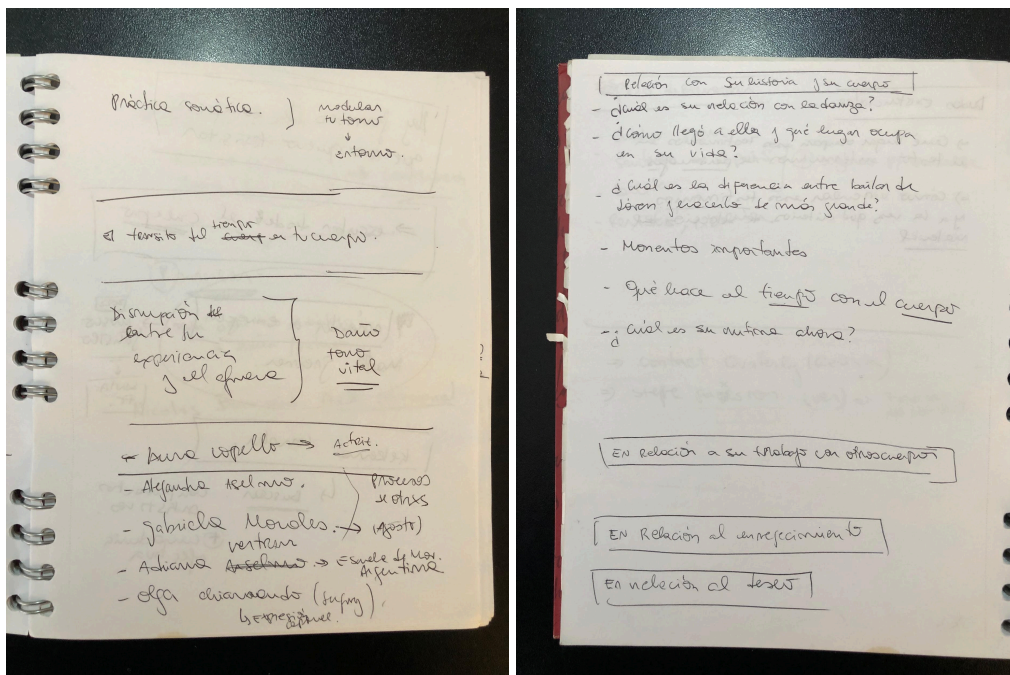 Práctica somática. } modular
tu tono
↓
entorno.
el transito del tiempo en tu cuerpo.
Disrupción
entre su
experiencia
y el afuera
Daño
tono
vital
- Aura Copello → Actriz.
- Alejandra Aselmo.
Procesos
de otrxs
- Gabriela Morales. → (Agosto)
- Adriana → Escuela de Mov.
Argentina
- Olga
↳ Expresión
Relación con su historia y su cuerpo
- ¿Cuál es su relación con la danza?
- ¿Cómo llegó a ella y qué lugar ocupa
en su vida?
- ¿Cuál es la diferencia entre bailar de
joven y hacerlo de más grande?
- Momentos importantes
- Qué hace el tiempo con el cuerpo
- ¿Cuál es su rutina ahora?
EN Relación a su trabajo con otros cuerpos
EN Relación al envejecimiento
En relación al deseo